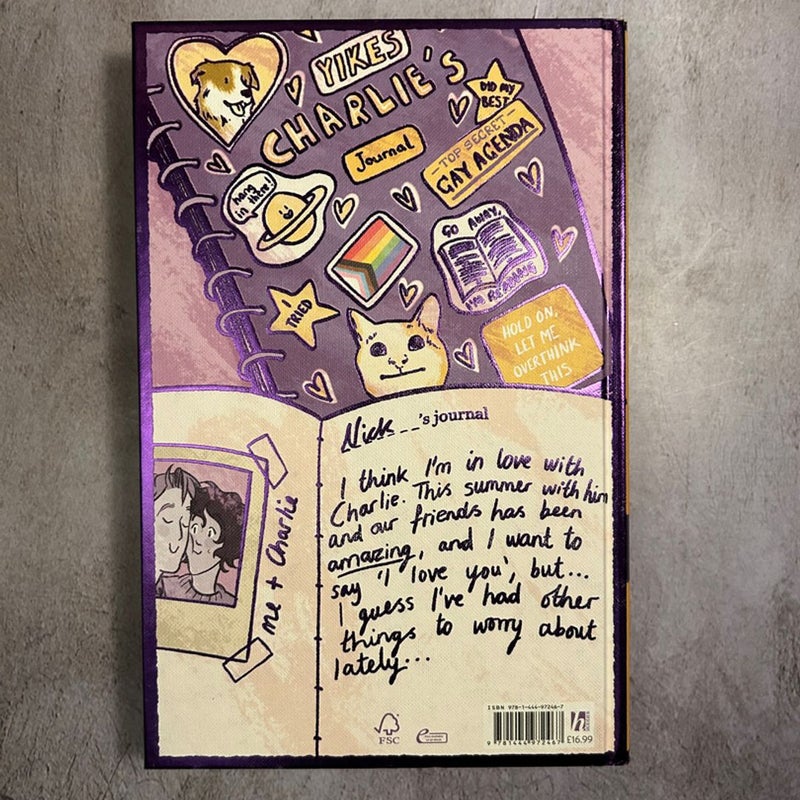 YIKES
CHARLIE'S
DID MY
BEST
Journal
-TOP SECRET-
GAY AGENDA
hang
in there!
GO AWAY,
I'M READING
I
TRIED
HOLD ON,
LET ME
OVERTHINK
THIS
me + Charlie
Nick__'s journal
I think I'm in love with
Charlie. This summer with him
and our friends has been
amazing, and I want to
say 'I love you', but...
I guess I've had other
things to worry about
lately...
FSC
ISBN 978-1-444-97246-7
9 781444 972467
h
£16.99